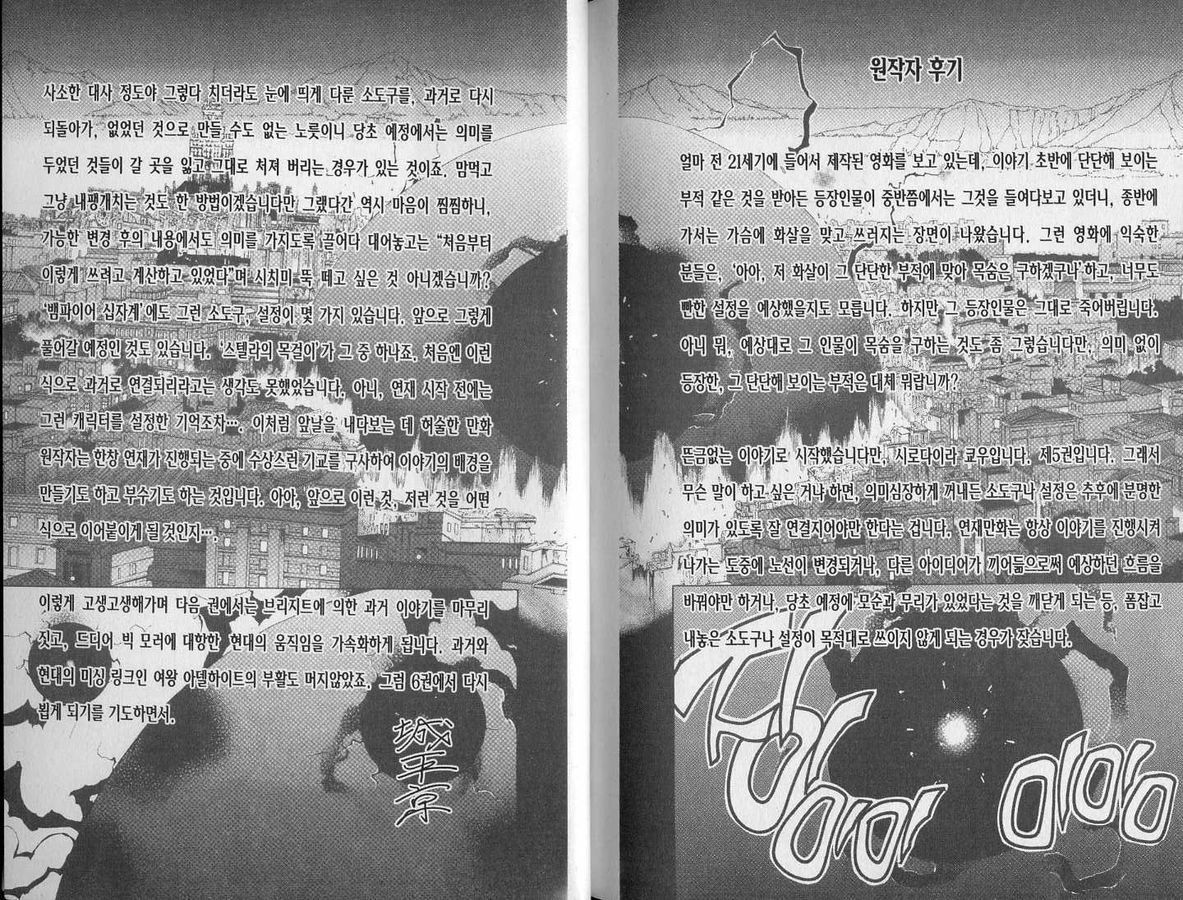 원작자 후기
얼마 전 21세기에 들어서 제작된 영화를 보고 있는데, 이야기 초반에 단단해 보이는
부적 같은 것을 받아든 등장인물이 중반쯤에서는 그것을 들여다보고 있더니, 종반에
가서는 가슴에 화살을 맞고 쓰러지는 장면이 나왔습니다. 그런 영화에 익숙한
분들은, '아아, 저 화살이 그 단단한 부적에 맞아 목숨은 구하겠구나'하고, 너무도
빤한 설정을 예상했을지도 모릅니다. 하지만 그 등장인물은 그대로 죽어버립니다.
아니 뭐, 예상대로 그 인물이 목숨을 구하는 것도 좀 그렇습니다만, 의미 없이
등장한, 그 단단해 보이는 부적은 대체 뭐랍니까?
뜬금없는 이야기로 시작했습니다만, 시로다이라 쿄우입니다. 제5권입니다. 그래서
무슨 말이 하고 싶은 거냐 하면, 의미심장하게 꺼내든 소도구나 설정은 추후에 분명한
의미가 있도록 잘 연결지어야만 한다는 겁니다. 연재만화는 항상 이야기를 진행시켜
나가는 도중에 노선이 변경되거나, 다른 아이디어가 끼어듦으로써 예상하던 흐름을
바꿔야만 하거나, 당초 예정에 모순과 무리가 있었다는 것을 깨닫게 되는 등, 폼잡고
내놓은 소도구나 설정이 목적대로 쓰이지 않게 되는 경우가 잦습니다.
사소한 대사 정도야 그렇다 치더라도 눈에 띄게 다룬 소도구를, 과거로 다시
되돌아가, 없었던 것으로 만들 수도 없는 노릇이니 당초 예정에서는 의미를
두었던 것들이 갈 곳을 잃고 그대로 처져 버리는 경우가 있는 것이죠. 맘먹고
그냥 내팽개치는 것도 한 방법이겠습니다만 그랬다간 역시 마음이 찜찜하니,
가능한 변경 후의 내용에서도 의미를 가지도록 끌어다 대어놓고는 "처음부터
이렇게 쓰려고 계산하고 있었다"며 시치미 뚝 떼고 싶은 것 아니겠습니까?
'뱀파이어 십자계'에도 그런 소도구, 설정이 몇 가지 있습니다. 앞으로 그렇게
풀어갈 예정인 것도 있습니다. '스텔라의 목걸이'가 그 중 하나죠. 처음엔 이런
식으로 과거로 연결되리라고는 생각도 못했었습니다. 아니, 연재 시작 전에는
그런 캐릭터를 설정한 기억조차…. 이처럼 앞날을 내다보는 데 허술한 만화
원작자는 한창 연재가 진행되는 중에 수상스런 기교를 구사하여 이야기의 배경을
만들기도 하고 부수기도 하는 것입니다. 아아, 앞으로 이런 것, 저런 것을 어떤
식으로 이어붙이게 될 것인지….
이렇게 고생고생해가며 다음 권에서는 브리지트에 의한 과거 이야기를 마무리
짓고, 드디어 빅 모러에 대항한 현대의 움직임을 가속화하게 됩니다. 과거와
현대의 미싱 링크인 여왕 아델하이트의 부활도 머지않았죠. 그럼 6권에서 다시
뵙게 되기를 기도하면서.
城平京